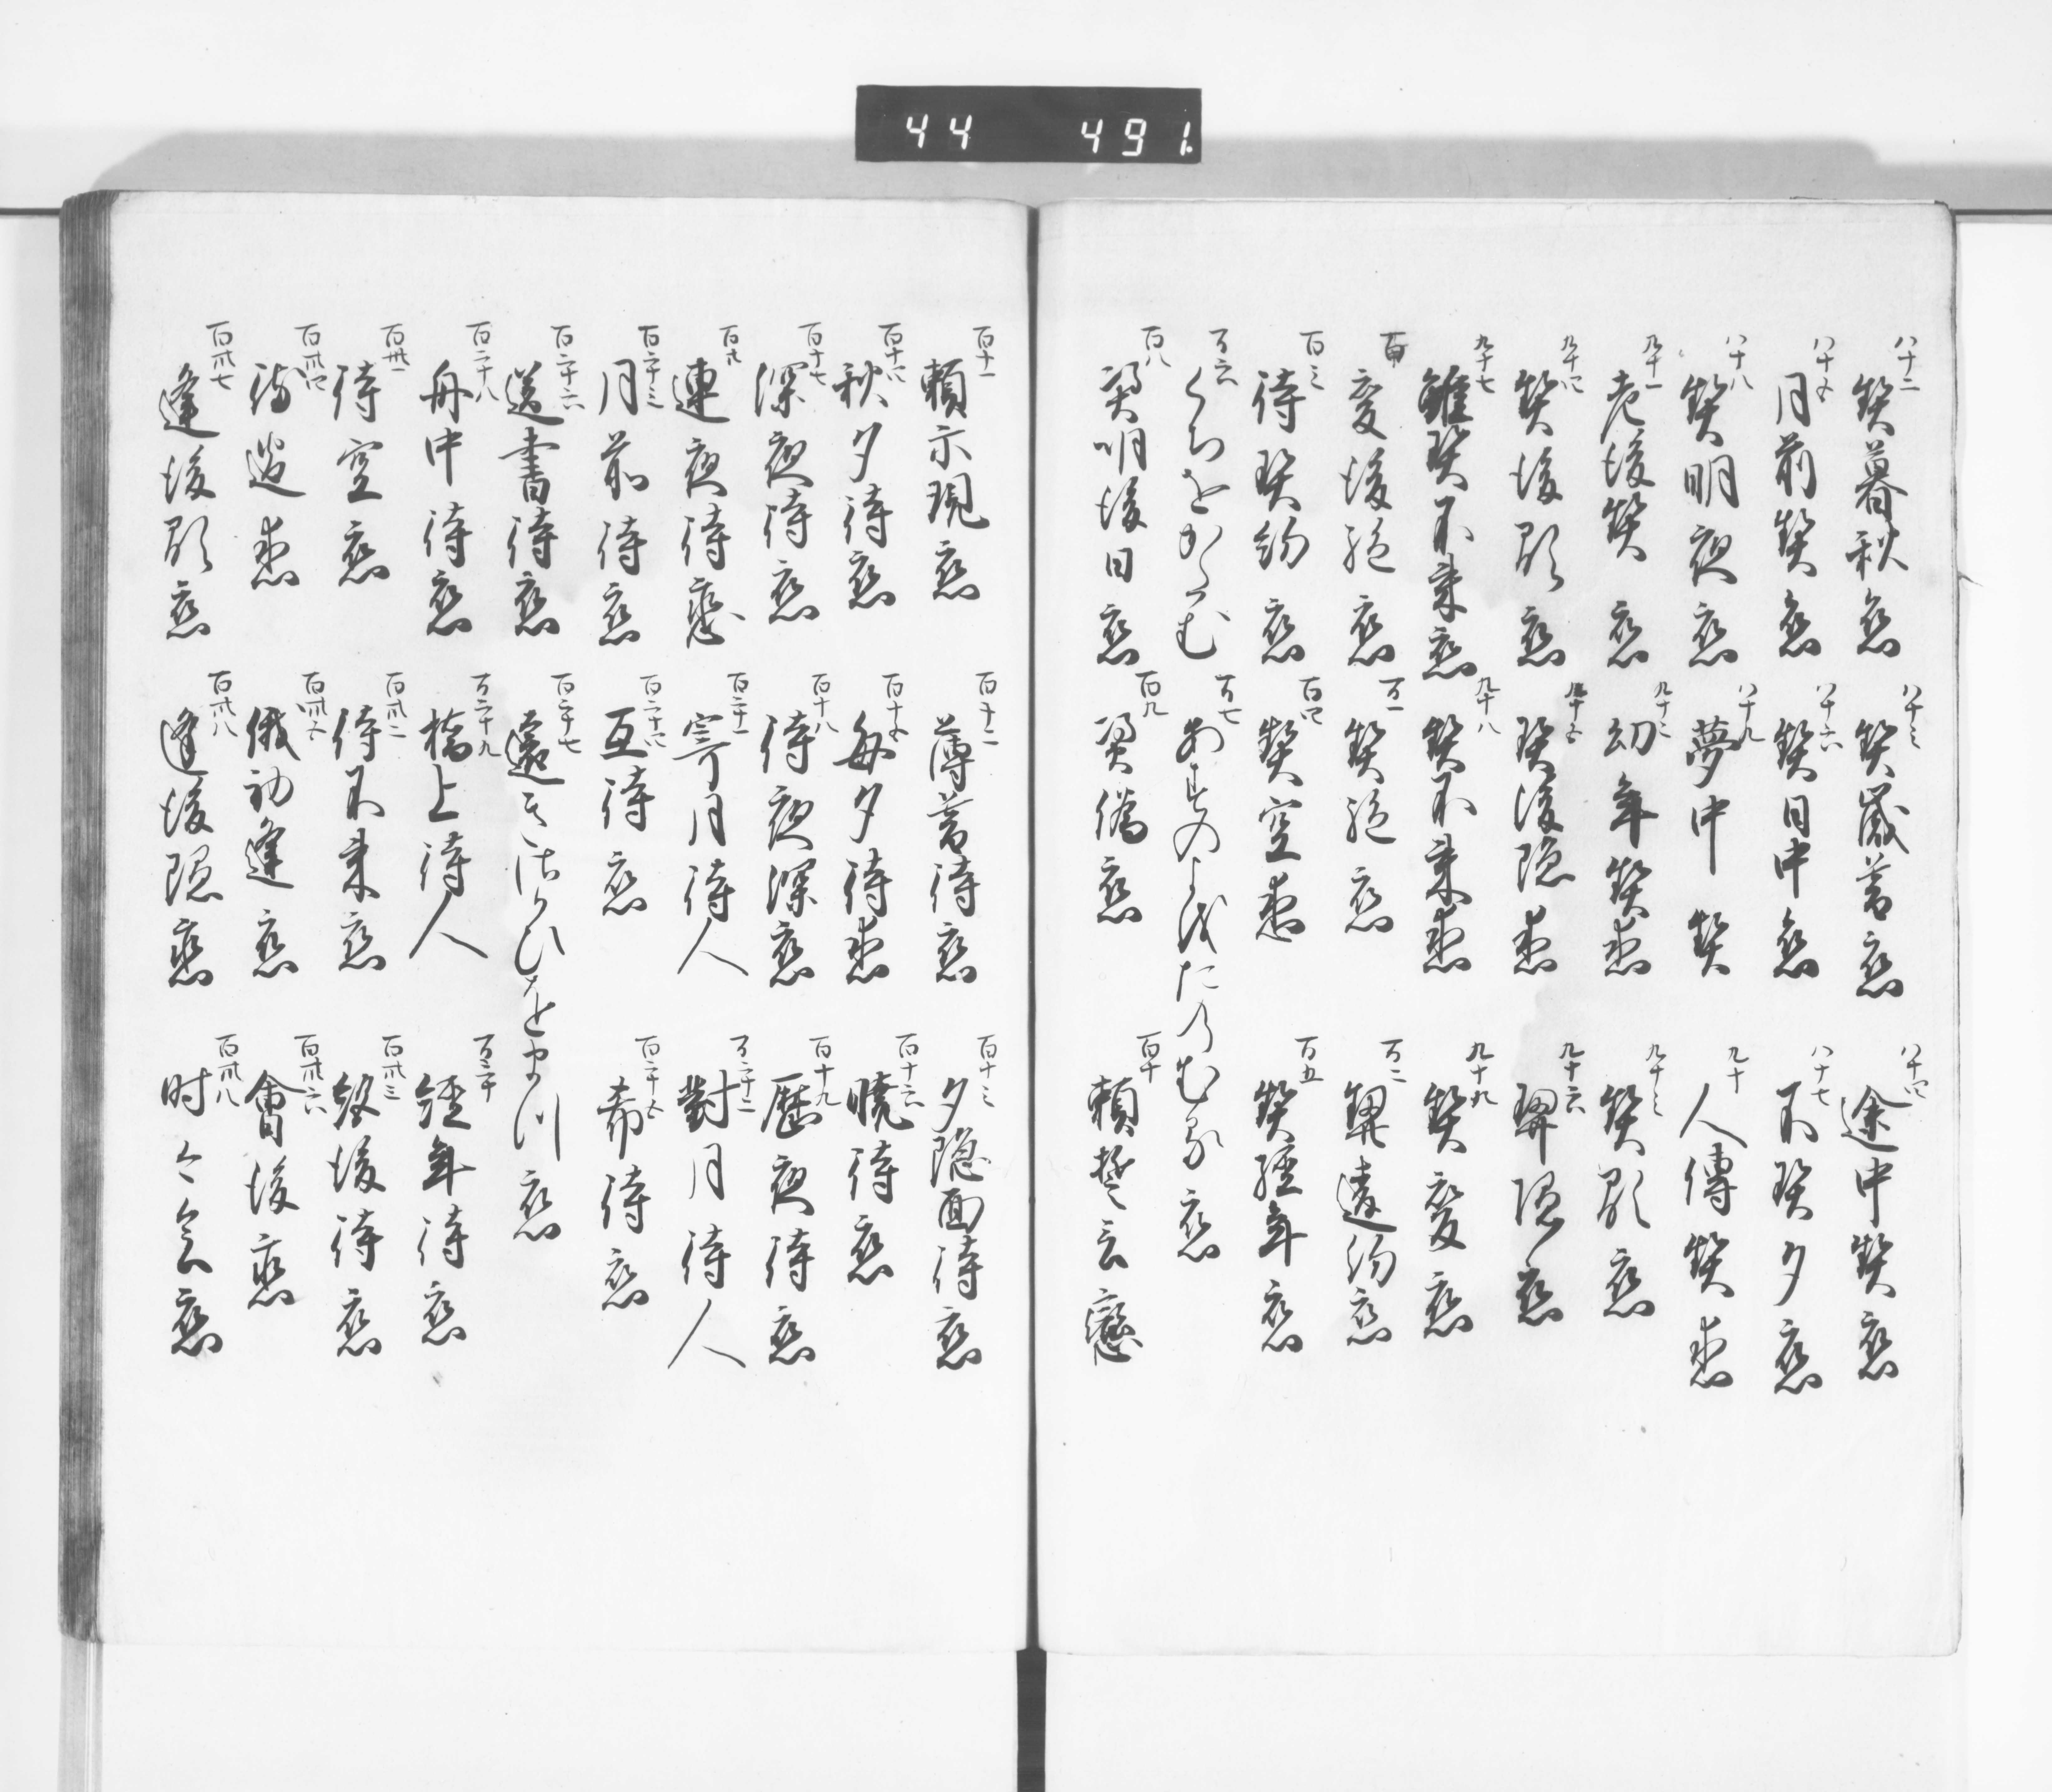 44 491
八十二 契暮秋恋
八十三 契歳暮恋
八十四 途中契恋
八十五 月前契恋
八十六 契日中恋
八十七 不契夕恋
八十八 契明夜恋
八十九 夢中契
九十 人傳契恋
九十一 老後契恋
九十二 幼年契恋
九十三 契顕恋
九十四 契後顕恋
九十五 契後隠恋
九十六 契隠恋
九十七 雖契不来恋
九十八 契不来恋
九十九 契変恋
百 変後絶恋
百一 契絶恋
百二 契違約恋
百三 待契約恋
百四 契空恋
百五 契経年恋
百六 くちをかたむ
百七 あすのよをたのむる恋
百八 契明後日恋
百九 契偽恋
百十 頼誓言戀
百十一 頼示現恋
百十二 薄暮待恋
百十三 夕隠面待恋
百十四 秋夕待恋
百十五 毎夕待恋
百十六 暁待恋
百十七 深夜待恋
百十八 待夜深恋
百十九 歴夜待恋
百廿 連夜待戀
百二十一 寄月待人
百二十二 對月待人
百二十三 月前待恋
百二十四 互待恋
百二十五 希待恋
百二十六 送書待恋
百二十七 遠きつかひをまつ恋
百二十八 舟中待恋
百二十九 橋上待人
百三十 経年待恋
百卅一 待空恋
百卅二 待不来恋
百卅三 絶後待恋
百卅四 邂逅恋
百卅五 俄初逢恋
百卅六 會後恋
百卅七 逢後顕恋
百卅八 逢後隠恋
百卅八 时々会恋